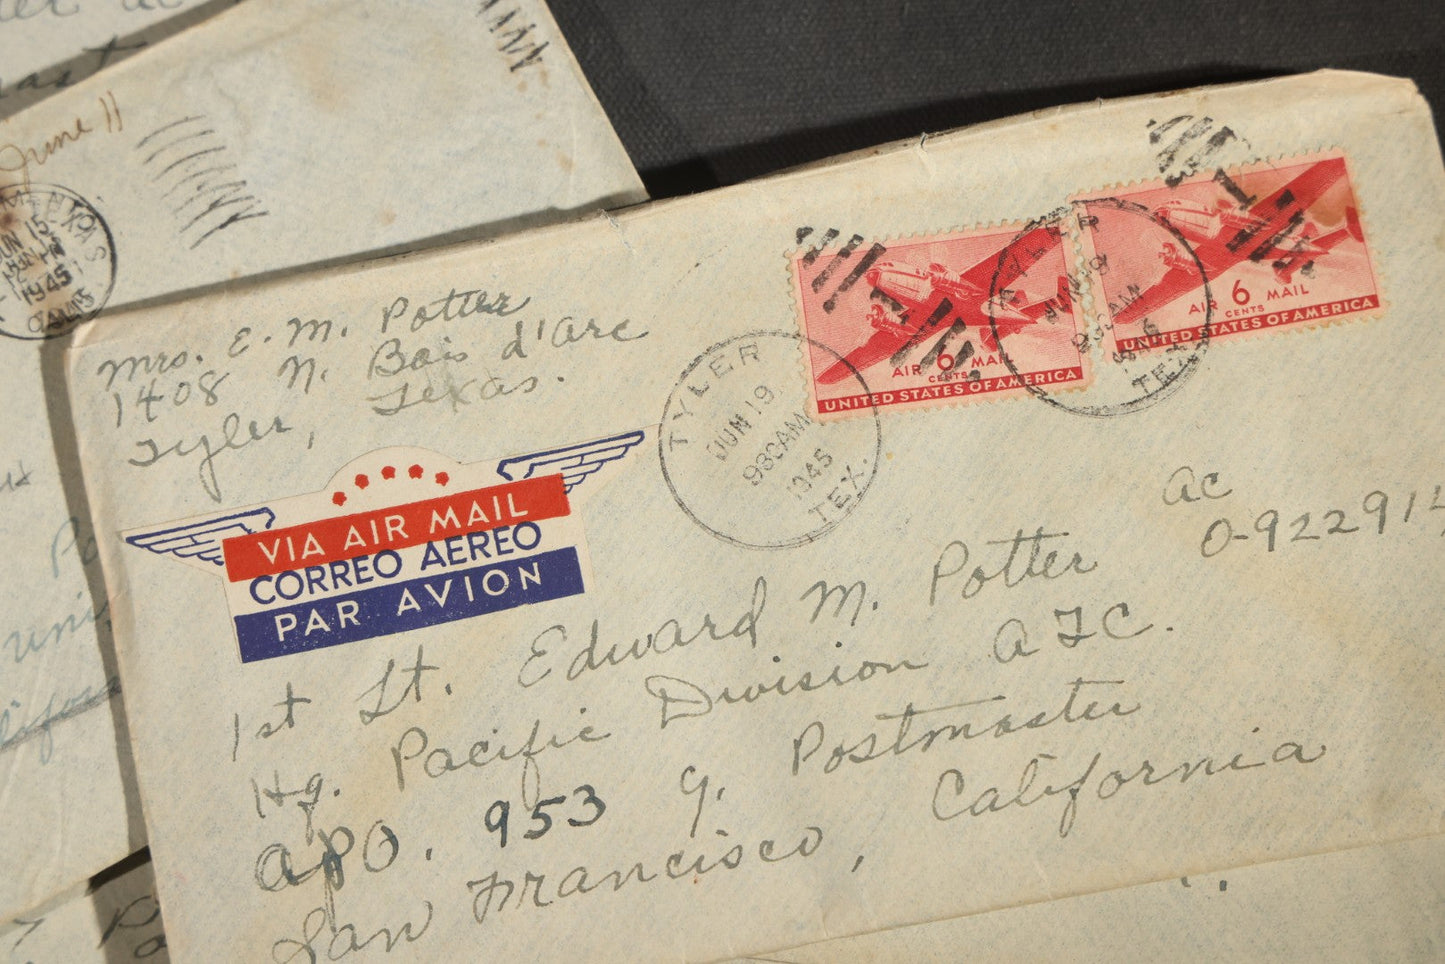 June 11
JUN 15
1945
Mrs. E. M. Potter
1408 N. Bois d'Arc
Tyler, Texas.
VIA AIR MAIL
CORREO AEREO
PAR AVION
TYLER
JUN 19
930AM
1945
TEX.
6
AIR MAIL
CENTS
UNITED STATES OF AMERICA
TYLER
JUN 19
TEX.
6
AIR MAIL
CENTS
UNITED STATES OF AMERICA
AC
1st Lt. Edward M. Potter O-922914
Hq. Pacific Division ATC.
APO. 953 % Postmaster
San Francisco, California